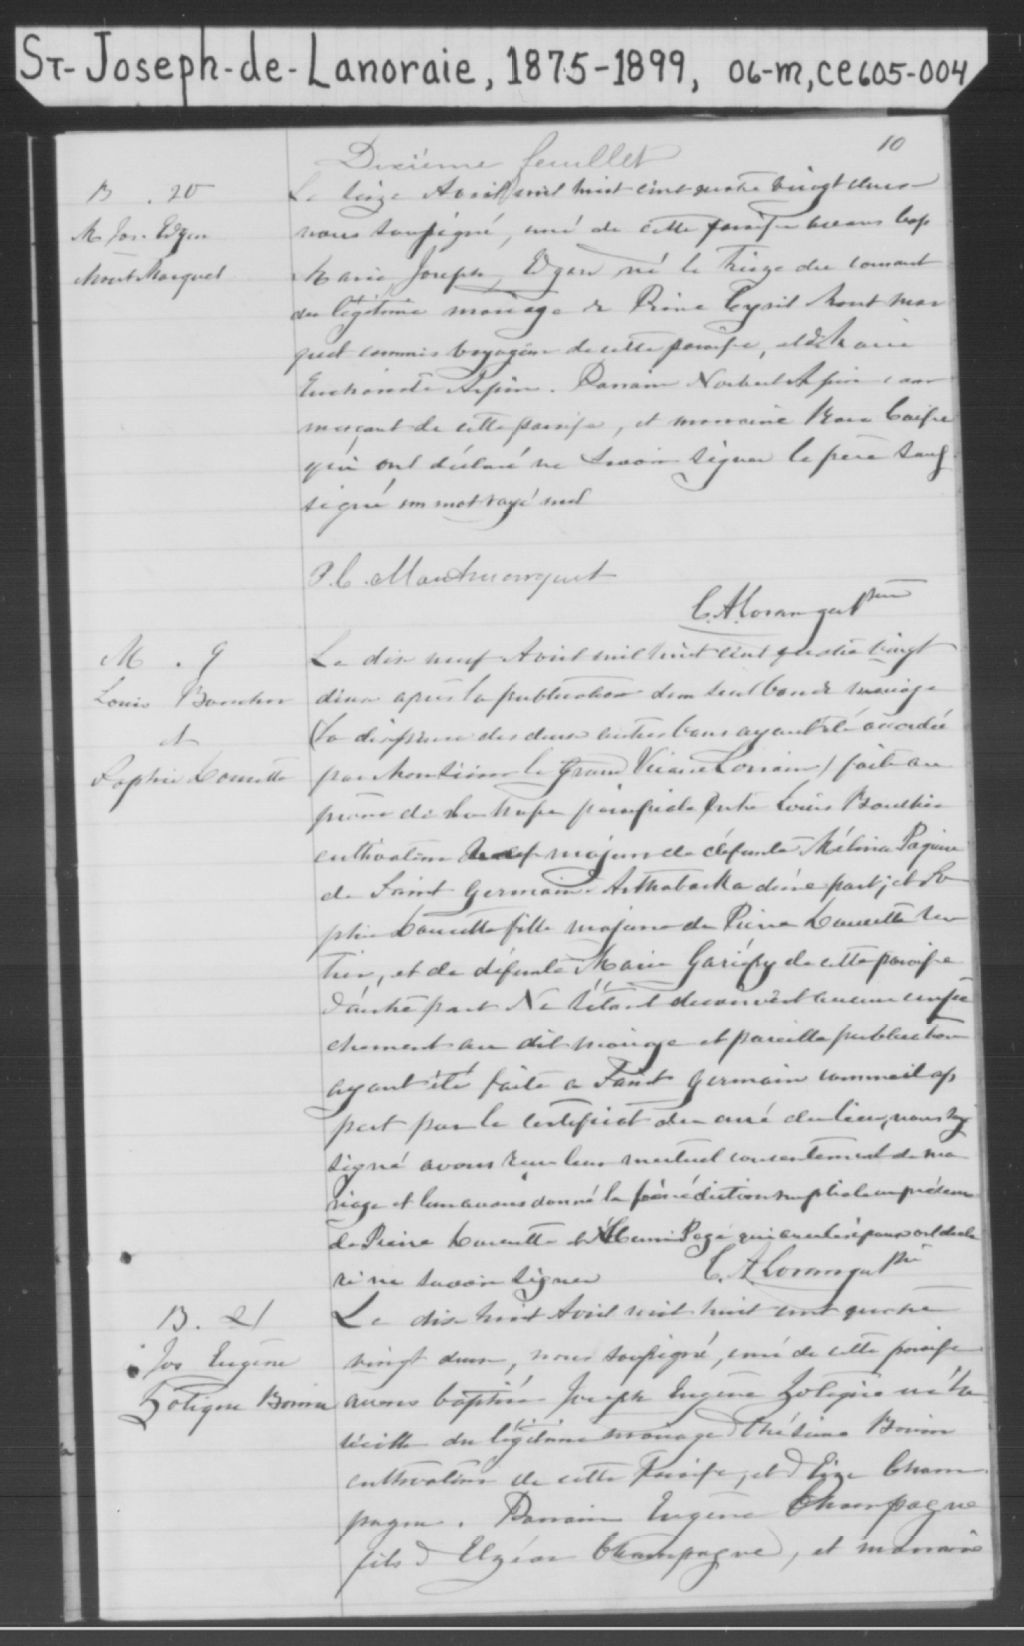 St-Joseph-de-Lanoraie, 1875-1899, 06-M, CE605-004
10
Dixième feuillet
B. 20
M Jos. Edgar
Mont Marquet
Le seize Avril mil huit cent quatre vingt deux
nous soussigné, curé de cette paroisse avons bap
Marie Joseph Edgar né le treize du courant
du légitime mariage de Pierre Cyril Mont mar
quet commis voyageur de cette paroisse, et de Marie
Arpin. Parrain Norbert Arpin com
merçant de cette paroisse, et marraine
qui ont déclaré ne savoir signer le père sous
signé un mot rayé nul
P. C. Montmarquet
C. A. Loranger Ptre
M. 9
Louis Boucher
et
Sophie Doucette
Le dix neuf Avril mil huit cent quatre vingt
deux après la publication d'un seul ban de mariage
(la dispense des deux autres bans ayant été accordée
par Monsieur le Grand Vicaire Lorrain) faite au
prône de la messe paroissiale entre Louis Boucher
cultivateur majeur de défunte Mélina
de Saint Germain Arthabaska d'une part; et So
phie Doucette fille majeure de Pierre Doucette ren
tier, et de défunte Marie de cette paroisse
d'autre part Ne s'étant découvert aucun empê
chement au dit mariage et pareille publication
ayant été faite a Saint Germain comme il ap
pert par le certificat du curé du lieu, nous sou
signé avons reçu leur mutuel consentement de ma
riage et leur avons donné la bénédiction nuptiale en présence
de Pierre Doucette et Pagé qui avec les époux ont décla
ré ne savoir signer
C. A. Loranger Ptre
B. 21
Jos Eugène
Zotique Bonin
Le dix huit Avril mil huit cent quatre
vingt deux, nous soussigné, curé de cette paroisse
avons baptisé Joseph Eugène Zotique né la
veille du légitime mariage d'Onésime Bonin
cultivateur de cette paroisse, et d'Eliza Cham
pagne. Parrain Eugène Champagne
fils d'Elzéar Champagne, et marraine